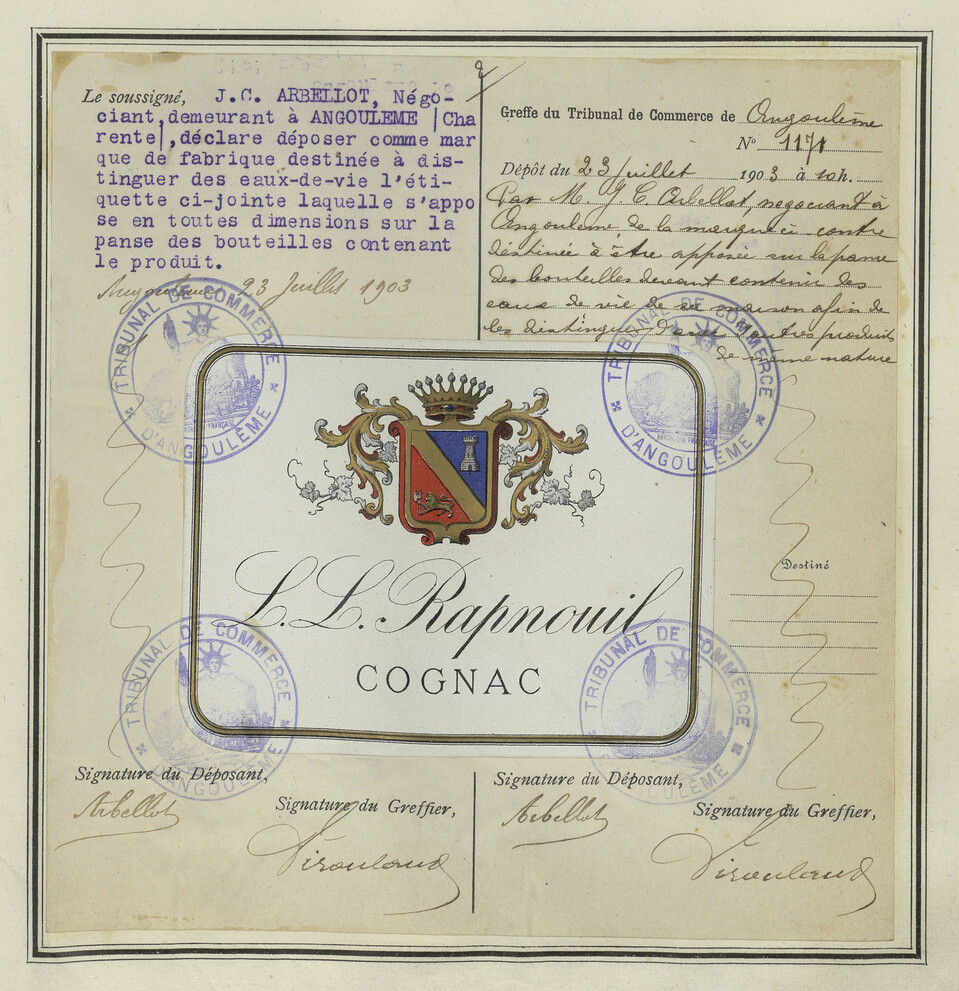 2
Le soussigné, J.C. ARBELLOT, Négo-
ciant,demeurant à ANGOULEME |Cha
rente|,déclare déposer comme mar
que de fabrique destinée à dis-
tinguer des eaux-de-vie l'éti-
quette ci-jointe laquelle s'appo
se en toutes dimensions sur la
panse des bouteilles contenant
le produit.
Angoulême 23 Juillet 1903
Greffe du Tribunal de Commerce de Angoulême
N° 1171
Dépôt du 23 juillet 1903 à 10h.
Par M. J. C. Arbellot, negociant à
Angoulême, de la marque ci contre
destinée à être apposée sur la panse
des bouteilles devant contenir des
eaux de vie de sa maison afin de
les distinguer d'avec d'autres produits
de même nature
TRIBUNAL DE COMMERCE D'ANGOULÊME
TRIBUNAL DE COMMERCE D'ANGOULÊME
L. L. Rapnouil
COGNAC
Destiné
TRIBUNAL DE COMMERCE D'ANGOULÊME
TRIBUNAL DE COMMERCE D'ANGOULÊME
Signature du Déposant,
Arbellot
Signature du Greffier,
Signature du Déposant,
Arbellot
Signature du Greffier,